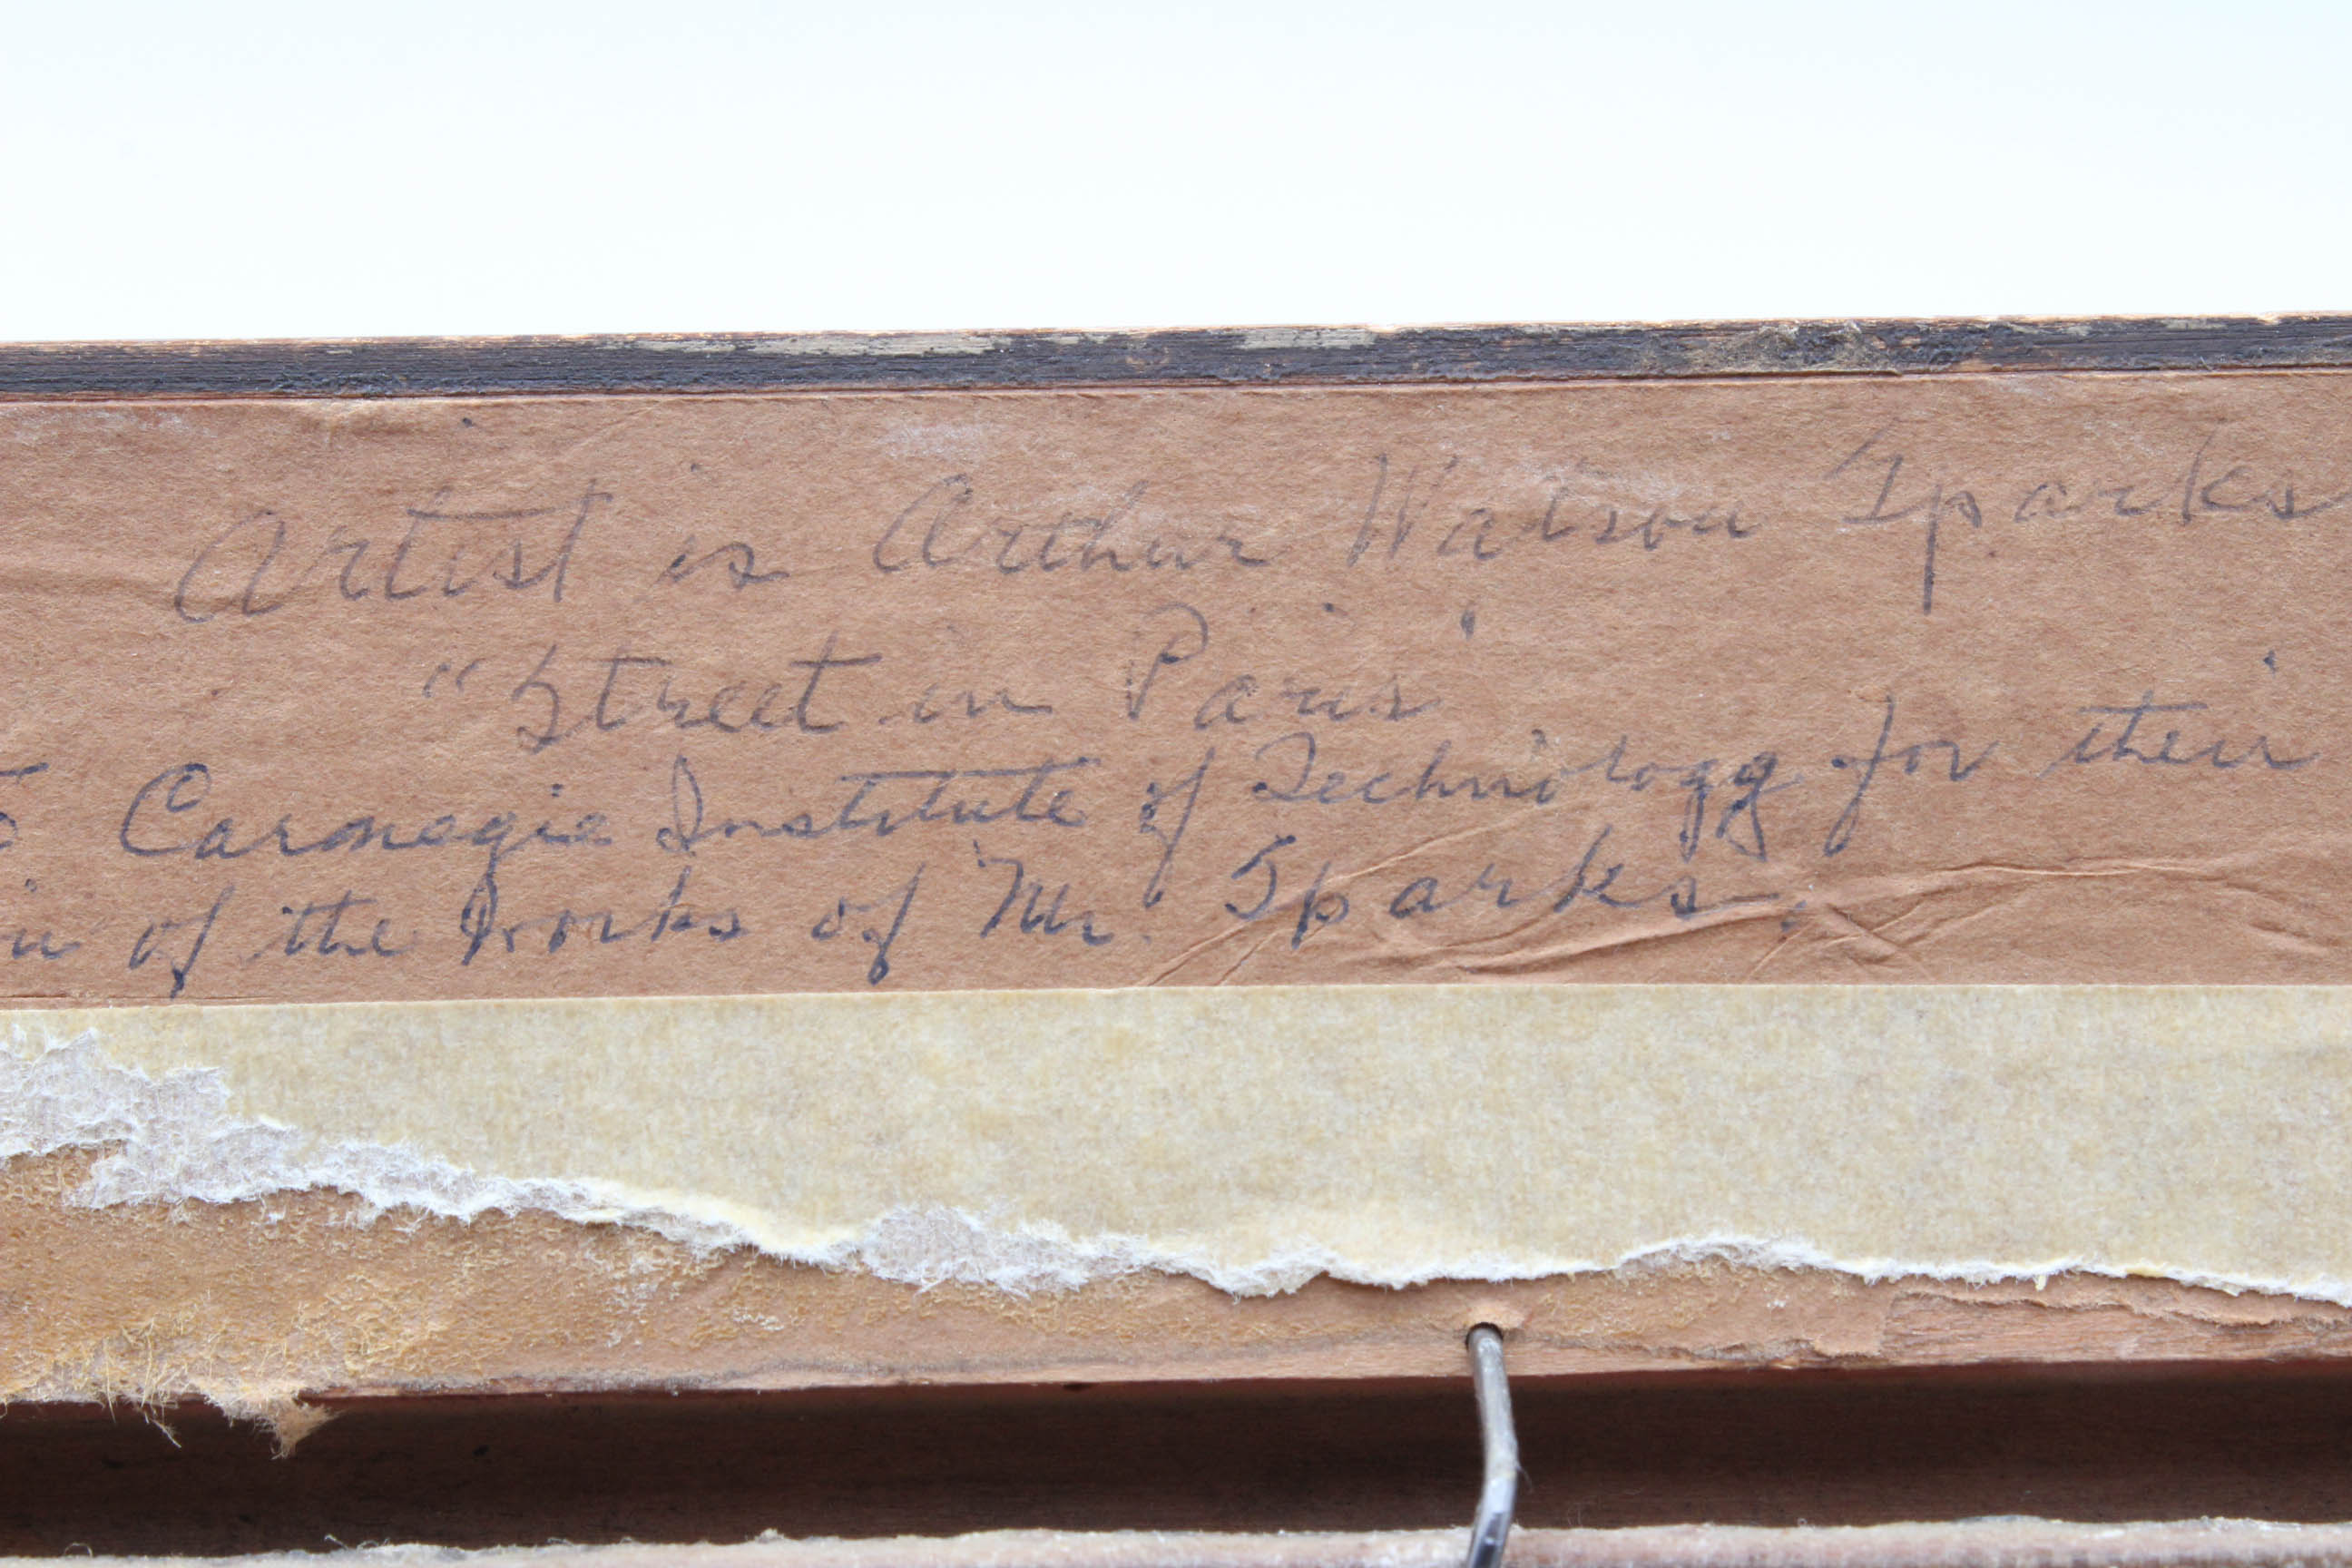 Artist is Arthur Watson Sparks
"Street in Paris"
Carnegie Institute of Technology for their
of the works of Mr. Sparks.